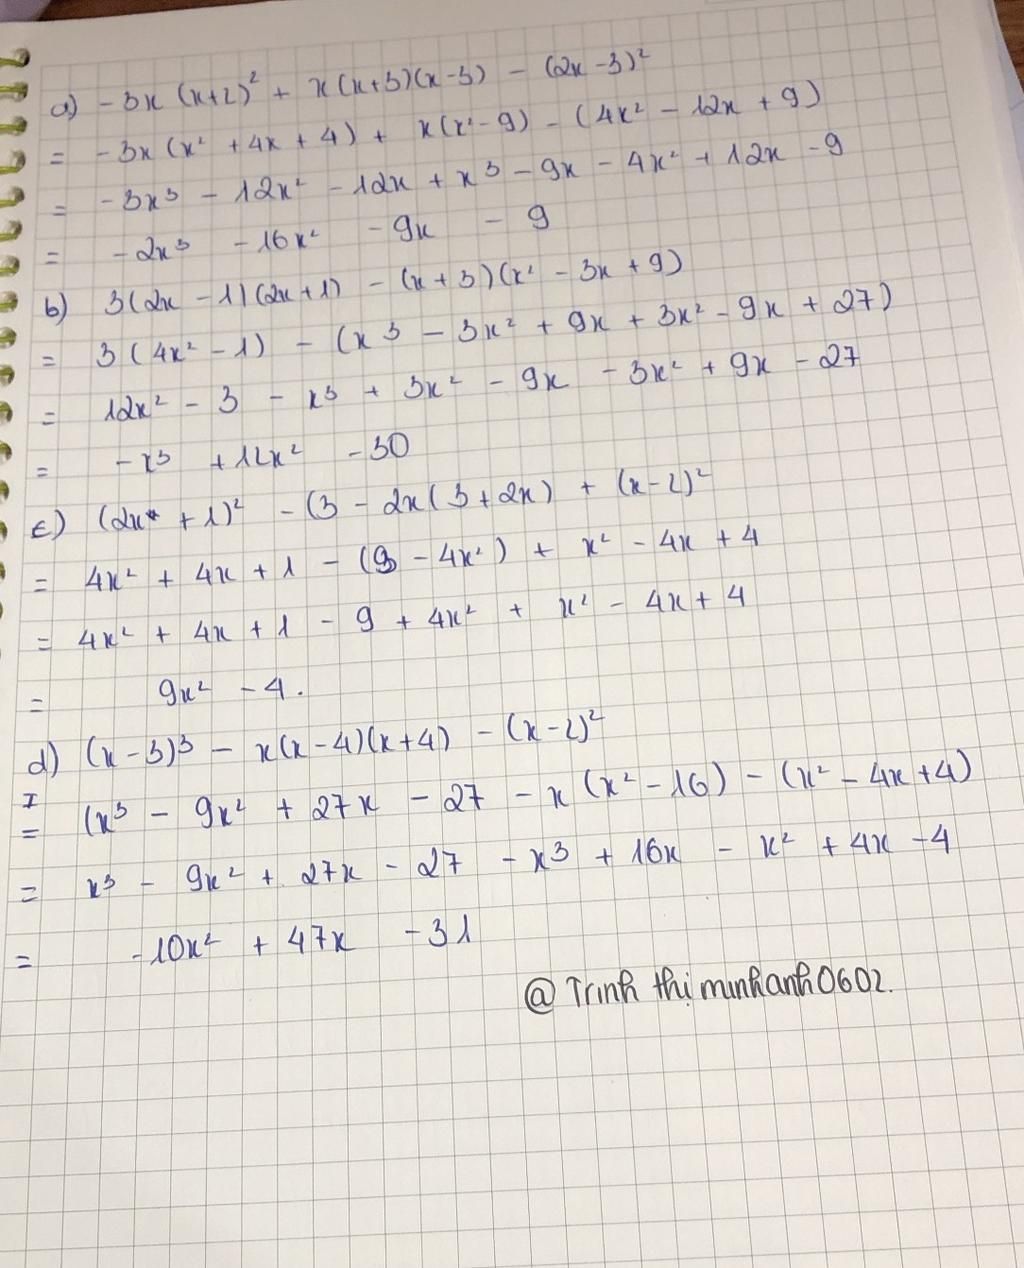 a) -3x (x+2)² + x(x+3)(x-3) - (2x-3)²
= -3x (x² + 4x + 4) + x(x²-9) - (4x² - 12x + 9)
= -3x³ - 12x² - 12x + x³ - 9x - 4x² + 12x - 9
= -2x³ - 16x² - 9x - 9
b) 3(2x - 1)(2x+1) - (x+3)(x² - 3x + 9)
= 3(4x² - 1) - (x³ - 3x² + 9x + 3x² - 9x + 27)
= 12x² - 3 - x³ + 3x² - 9x - 3x² + 9x - 27
= -x³ + 12x² - 30
c) (2x + 1)² - (3 - 2x(3+2x) + (x-2)²
= 4x² + 4x + 1 - (9 - 4x²) + x² - 4x + 4
= 4x² + 4x + 1 - 9 + 4x² + x² - 4x + 4
= 9x² - 4.
d) (x-3)³ - x(x-4)(x+4) - (x-2)²
= (x³ - 9x² + 27x - 27 - x(x²-16) - (x² - 4x + 4)
= x³ - 9x² + 27x - 27 - x³ + 16x - x² + 4x - 4
= -10x² + 47x - 31
@ Trinh thị minhanh0602.